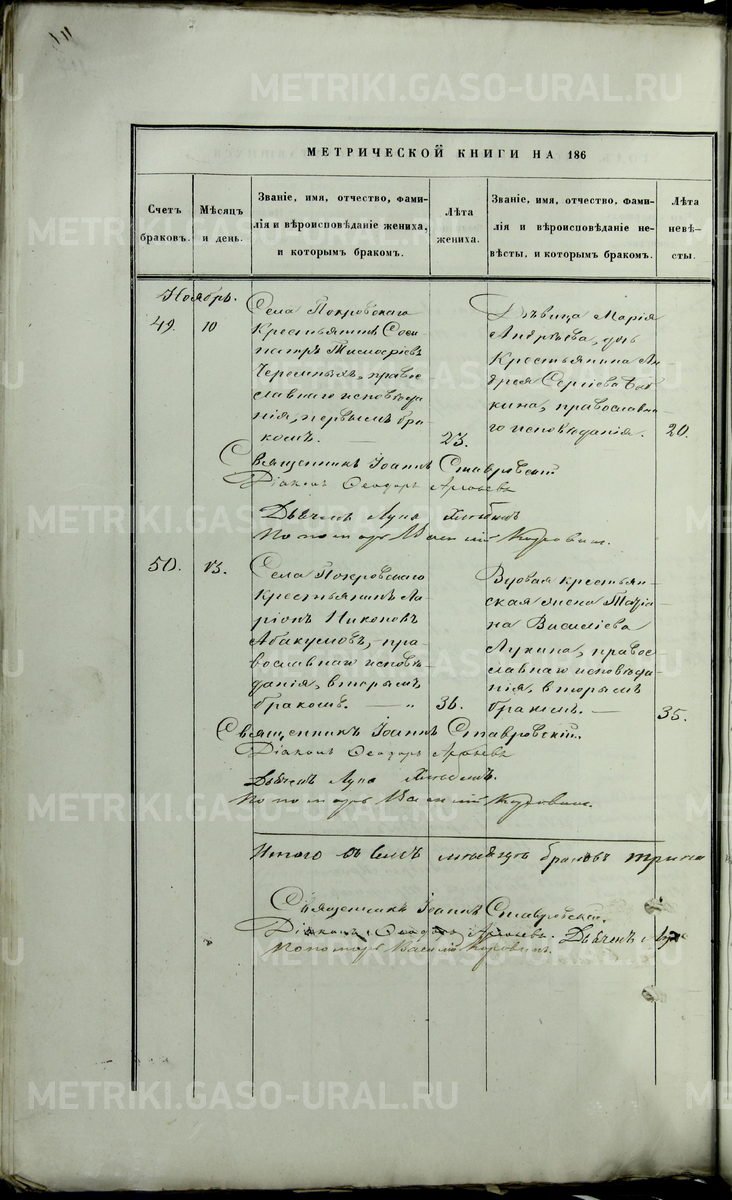 МЕТРИЧЕСКОЙ КНИГИ НА 186
Счетъ браковъ.
Мѣсяцъ и день.
Званіе, имя, отчество, фами-
лія и вѣроисповѣданіе жениха,
и которымъ бракомъ.
Лѣта жениха.
Званіе, имя, отчество, фами-
лія и вѣроисповѣданіе не-
вѣсты, и которымъ бракомъ.
Лѣта невѣ-
сты.
Ноябрь.
49.
10
Села Покровскаго
Крестьянинъ Соси-
патръ Тимофѣевъ
Черемныхъ, право-
славнаго исповѣда-
нія, первымъ бра-
комъ.
23.
Дѣвица Марія
Андрѣева, дочь
Крестьянина Ан-
дрея Сергіева
православна-
го исповѣданія.
20.
Священникъ Іоаннъ Ставровскій
Діаконъ Ѳеодоръ
Дьячекъ Лука
Пономарь Василій Коровинъ.
50.
13.
Села Покровскаго
Крестьянинъ Ла-
ріонъ Никоновъ
Абакумовъ, пра-
вославнаго исповѣ-
данія, вторымъ
бракомъ.
36.
Вдовая крестьян-
ская жена Татіа-
на Василіева
Лукина, правос-
лавнаго исповѣда-
нія, вторымъ
бракомъ.
35.
Священникъ Іоаннъ Ставровскій.
Діаконъ Ѳеодоръ
Дьячекъ Лука
Пономарь Василій Коровинъ.
Итого въ семъ браковъ
Священникъ Іоаннъ Ставровскій.
Діаконъ Ѳеодоръ Дьячекъ
Пономарь Василій Коровинъ.
METRIKI.GASO-URAL.RU